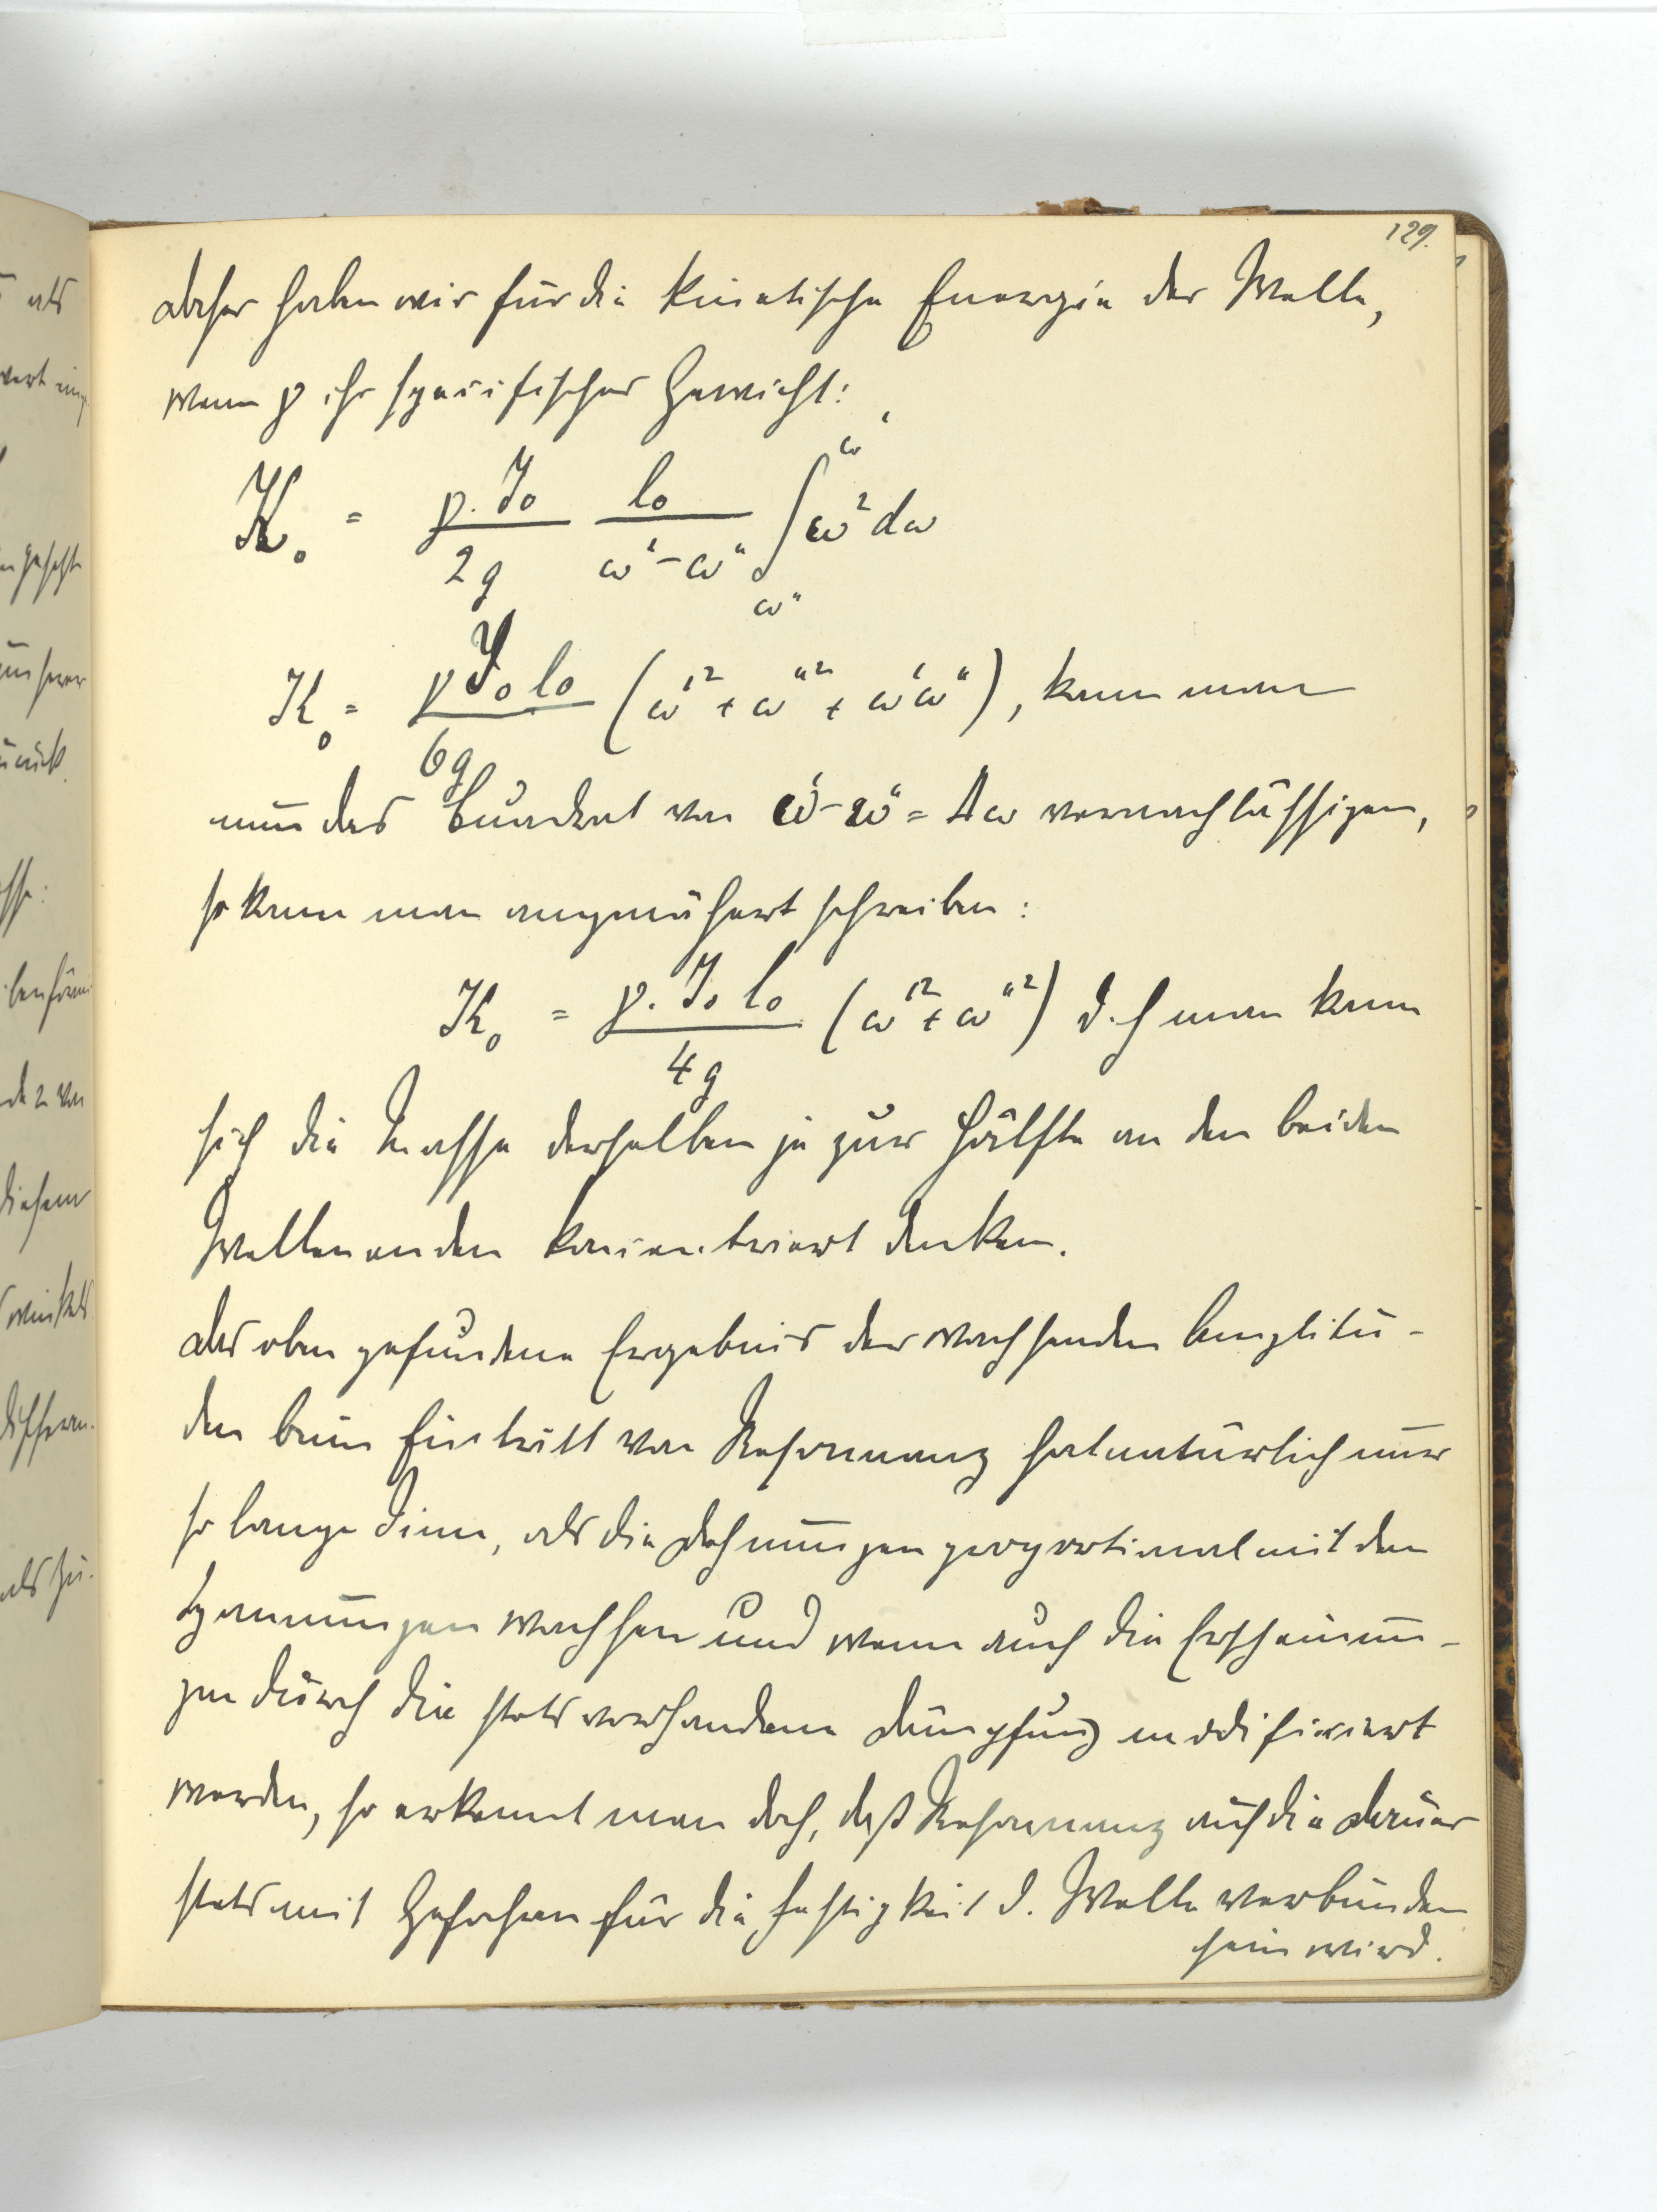 129.
daher haben wir für die kinetische Energie der Welle,
wenn γ ihr specifisches Gewicht:
K₀ = γ·J₀/2g l₀/(ω' − ω") ∫_{ω"}^{ω'} ω² dω
K₀ = γ J₀ l₀/6g (ω'² + ω"² + ω'ω"), kann man
nun das Quadrat von ω' − ω" = Δω vernachlässigen,
so kann man angenähert schreiben:
K₀ = γ·J₀ l₀/4g (ω'² + ω"²) d.h man kann
sich die Masse derselben je zur Hälfte an den beiden
Wellenenden koncentriert denken.
Das oben gefundene Ergebnis der wachsenden Amplitu-
den beim Eintritt von Resonnanz hat natürlich nur
so lange Sinn, als die Dehnungen proportional mit den
Spannungen wachsen und wenn auch die Erscheinun-
gen durch die stets vorhandene Dämpfung modificiert
werden, so erkennt man doch, daß Resonnanz auf die Dauer
stets mit Gefahren für die Festigkeit d. Welle verbunden
sein wird.
als
wert
diesem
als zu.